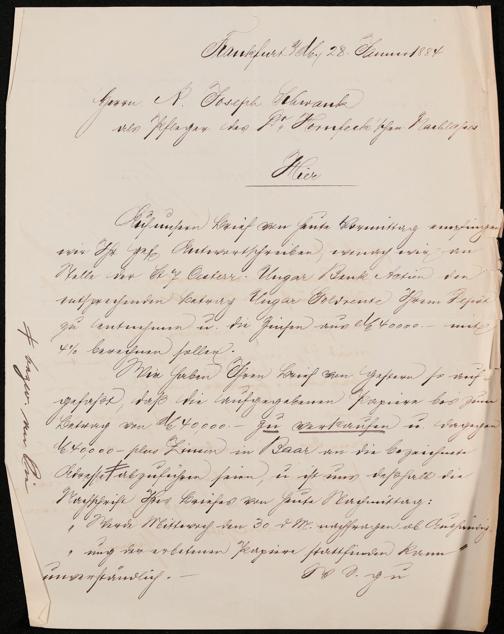 Frankfurt a/M, 28. Januar 1884
Herrn A. Joseph Schwank
als Pfleger des Dr. Hornfeck'schen Nachlasses
Hier
Auf unsern Brief von heute Vormittag empfingen
wir Ihr gef. Antwortschreiben, wonach wir an
Stelle der St 7 Oesterr. Ungar Bank Actien den
entsprechenden Betrag Ungar Goldrente Ihrem Depot
zu entnehmen u. die Zinsen aus M 40000.– mit
4% berechnen sollen.
Wir haben Ihren Brief von gestern so auf-
gefaßt, daß die aufgegebenen Papiere bis zum
Betrag von M 40000.– zu verkaufen u. dagegen
M 40000.– plus Zinsen in Baar an die bezeichnete
Adresse abzuliefern seien, u. ist uns deßhalb die
Nachschrift Ihres Briefes von heute Nachmittag:
„Werde Mittwoch den 30 d M. nachfragen ob Aushändig-
„ung der erbetenen Papiere stattfinden kann"
unverständlich. –